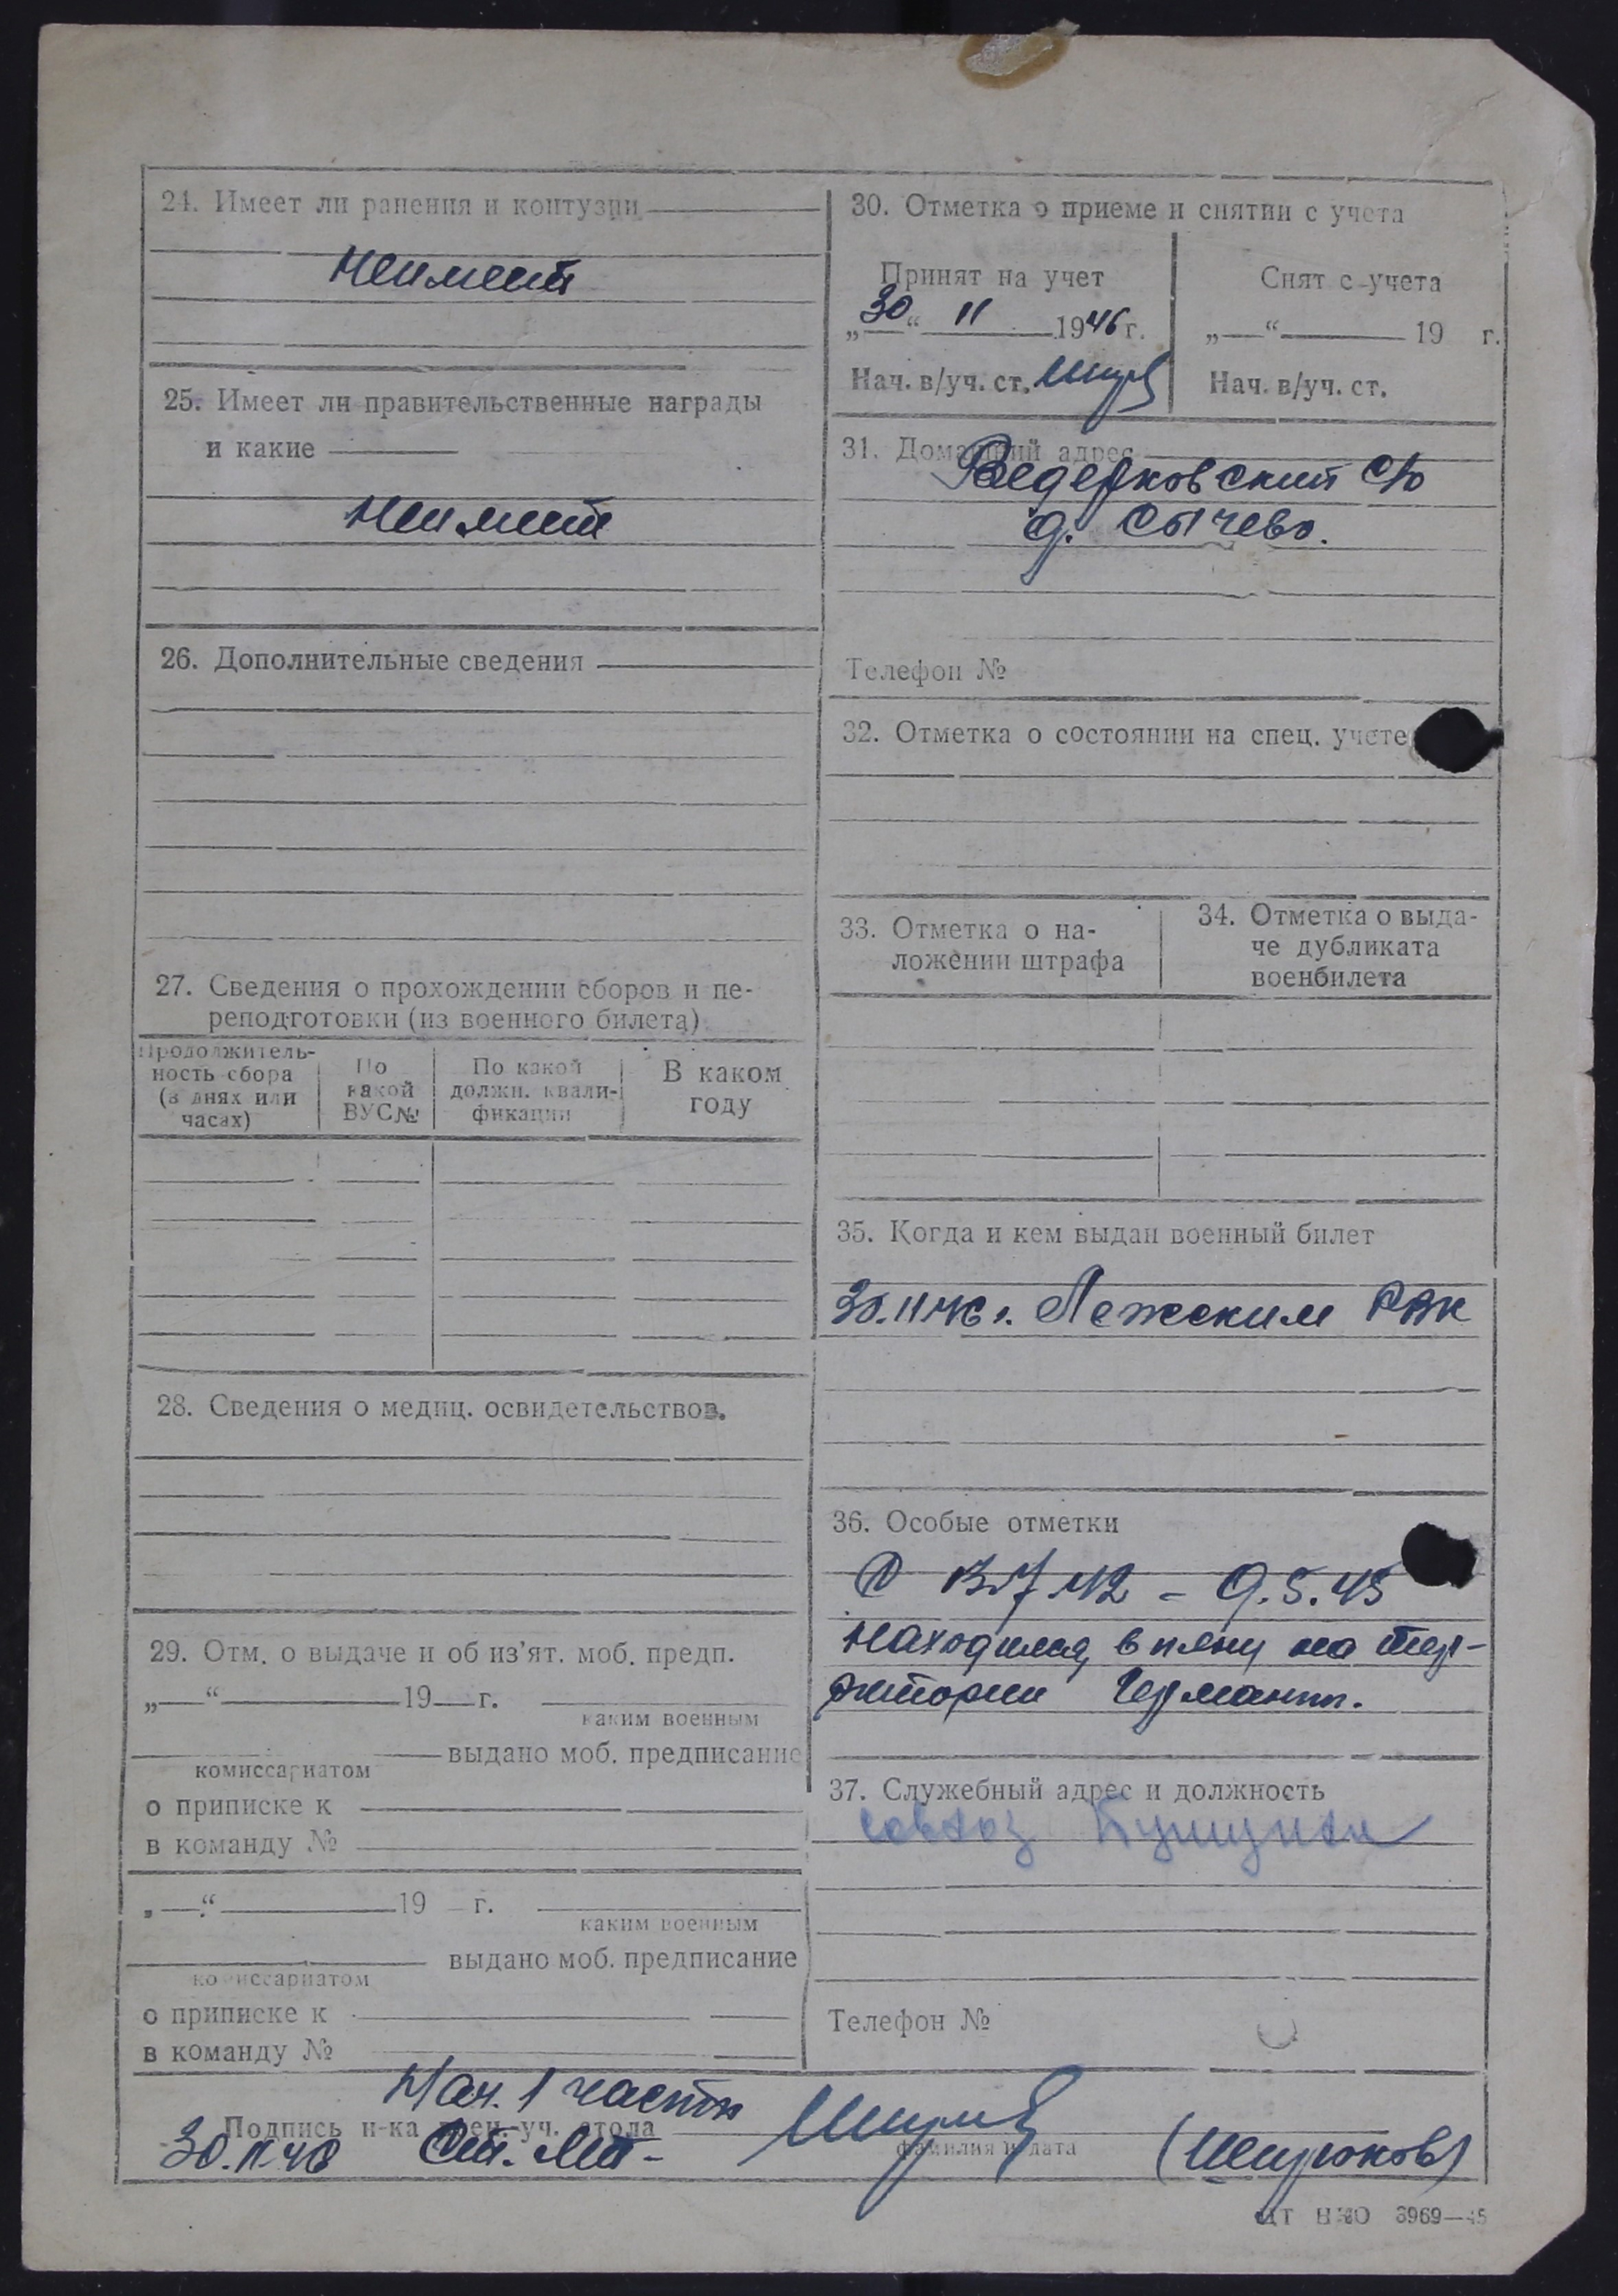 24. Имеет ли ранения и контузии
Неимеет
25. Имеет ли правительственные награды
и какие
Неимеет
26. Дополнительные сведения
27. Сведения о прохождении сборов и пе-
реподготовки (из военного билета)
Продолжитель-
ность сбора
(в днях или
часах)
По
какой
ВУС№
По какой
должн. квали-
фикации
В каком
году
28. Сведения о медиц. освидетельствов.
29. Отм. о выдаче и об из’ят. моб. предп.
„ “ 19 г.
каким военным
выдано моб. предписание
комиссариатом
о приписке к
в команду №
„ “ 19 г.
каким военным
выдано моб. предписание
комиссариатом
о приписке к
в команду №
30. Отметка о приеме и снятии с учета
Принят на учет
„30“ 11 1946 г.
Нач. в/уч. ст.
Снят с учета
„ “ 19 г.
Нач. в/уч. ст.
31. Домашний адрес
Ведерковский с/с
д. Сычево.
Телефон №
32. Отметка о состоянии на спец. учете
33. Отметка о на-
ложении штрафа
34. Отметка о выда-
че дубликата
военбилета
35. Когда и кем выдан военный билет
30.11.46 г. Лежским РВК
36. Особые отметки
С 13.7.42 - 9.5.45
находился в плену на тер-
ритории Германии.
37. Служебный адрес и должность
совхоз
Телефон №
Нач. 1 части
Подпись н-ка воен.-уч. стола
30.11.46 Ст. Лт-
фамилия и дата
(Ширюков)
ЦТ НКО 3969—45